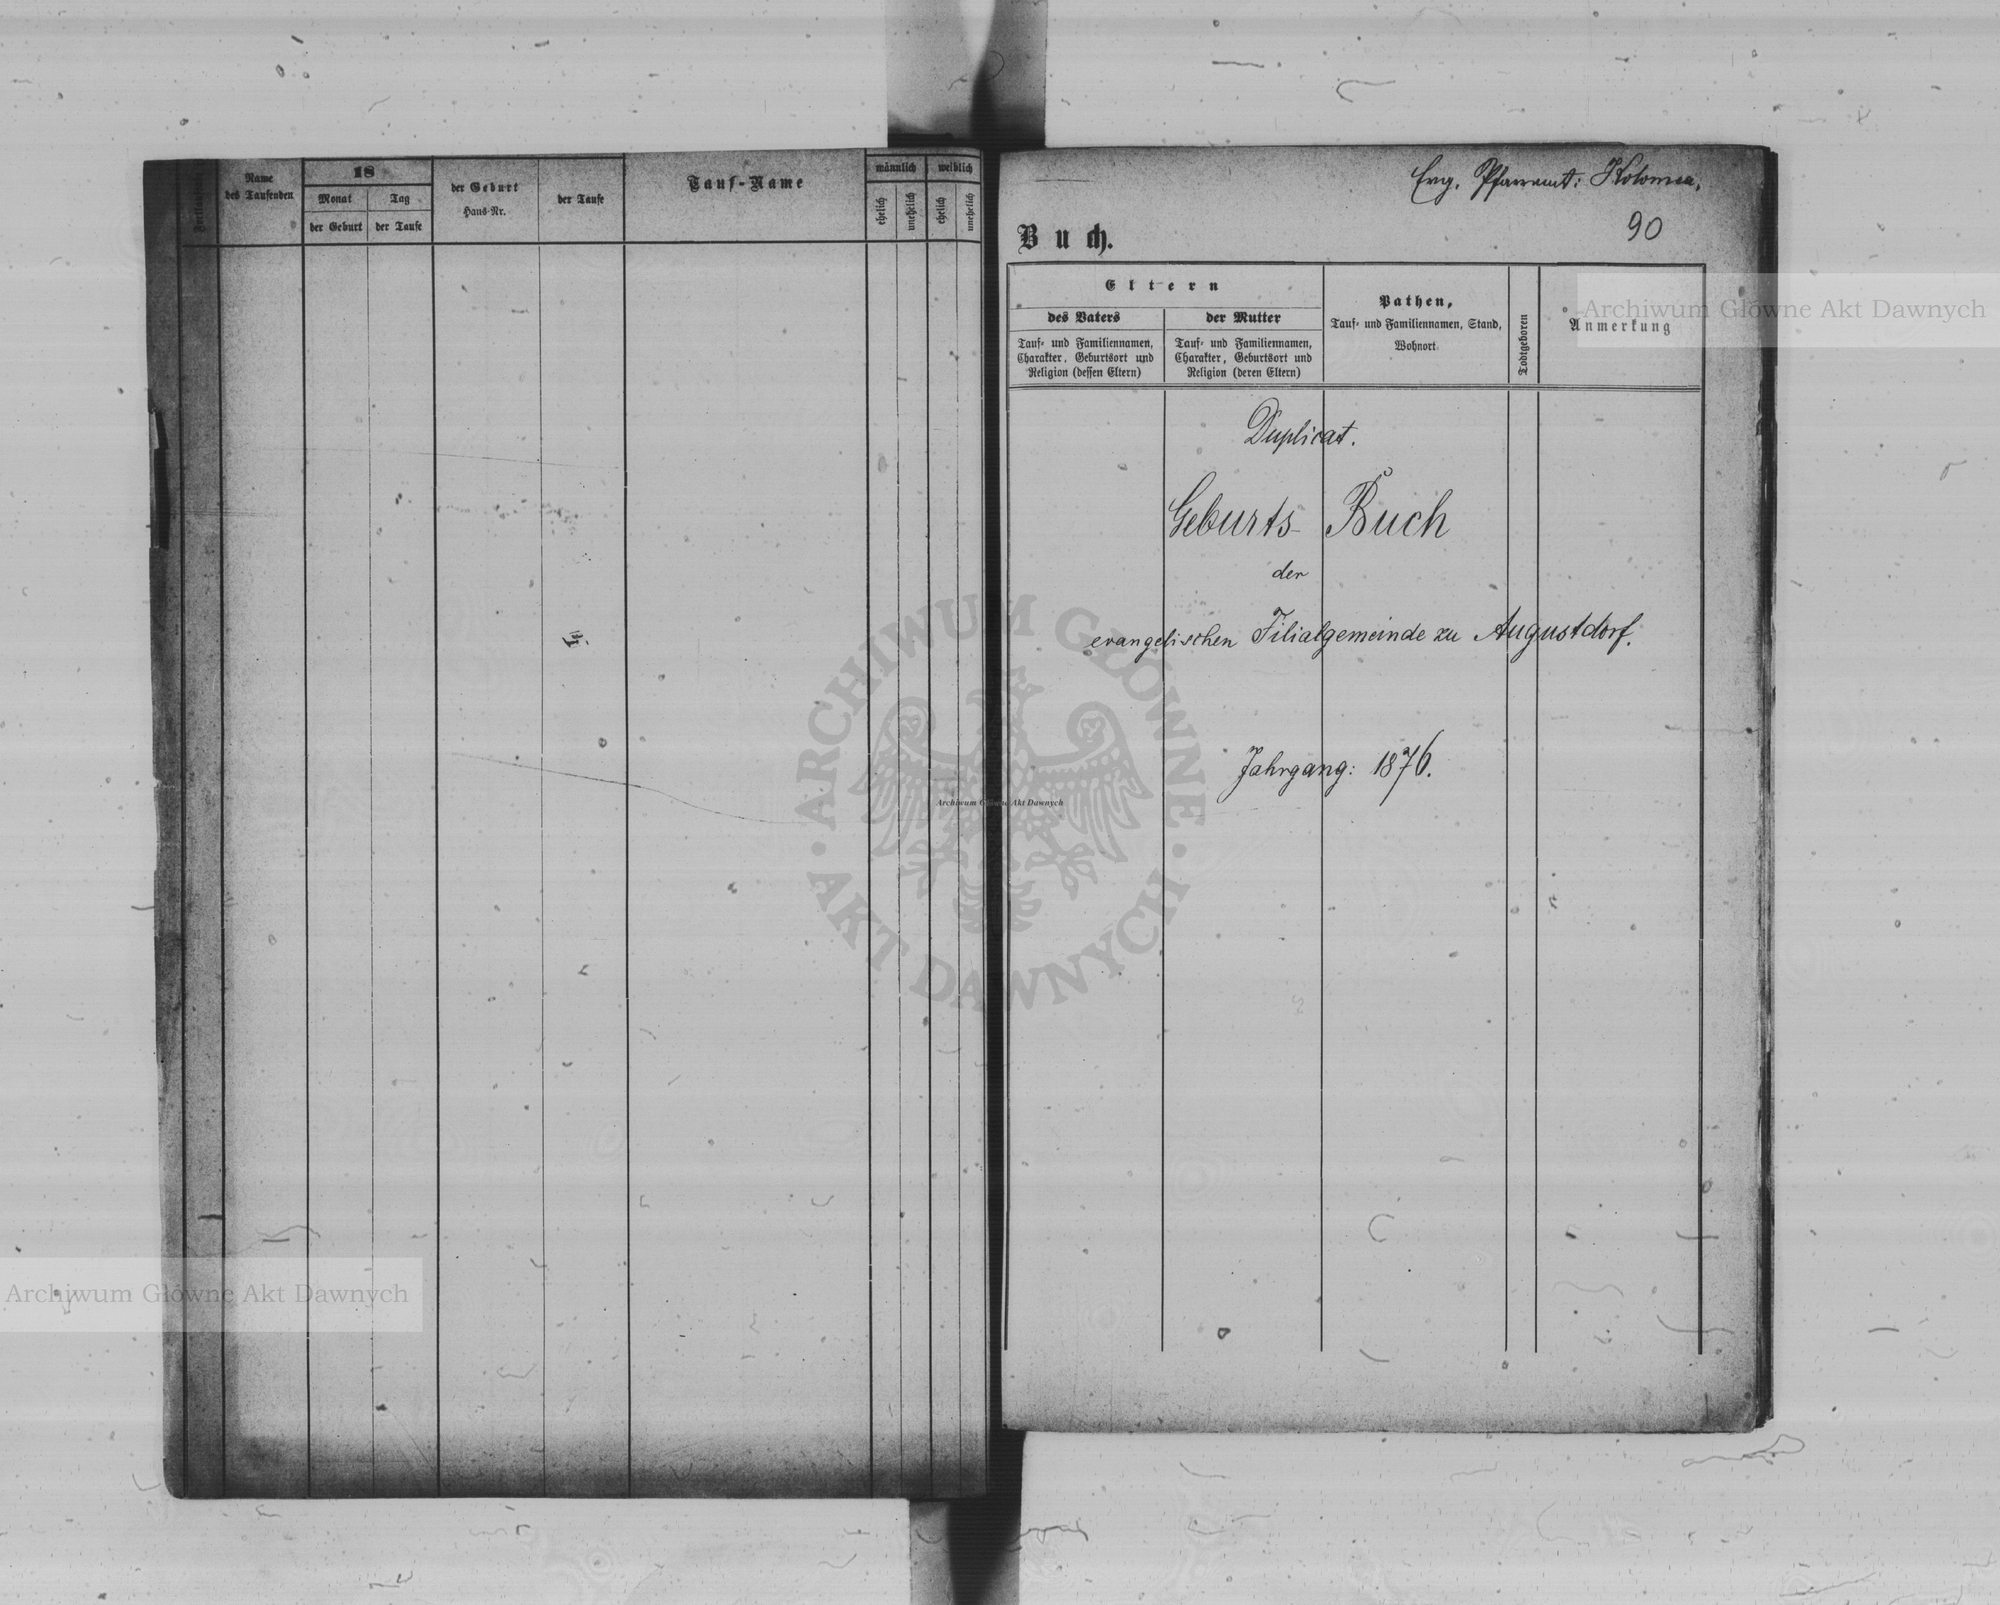 Name
des Taufenden
18
Monat
Tag
der Geburt
der Taufe
der Geburt
Haus-Nr.
der Taufe
Tauf-Name
männlich
weiblich
ehelich
unehelich
ehelich
unehelich
Evg. Pfarramt: Kolomea.
90
Buch.
Eltern
des Vaters
Tauf- und Familiennamen,
Charakter, Geburtsort und
Religion (dessen Eltern)
der Mutter
Tauf- und Familiennamen,
Charakter, Geburtsort und
Religion (deren Eltern)
Pathen,
Tauf- und Familiennamen, Stand,
Wohnort
Todtgeboren
Anmerkung
Duplicat.
Geburts-Buch
der
evangelischen Filialgemeinde zu Augustdorf.
Jahrgang: 1876.
Archiwum Główne Akt Dawnych
ARCHIWUM GŁÓWNE
AKT DAWNYCH
Archiwum Główne Akt Dawnych
Archiwum Główne Akt Dawnych